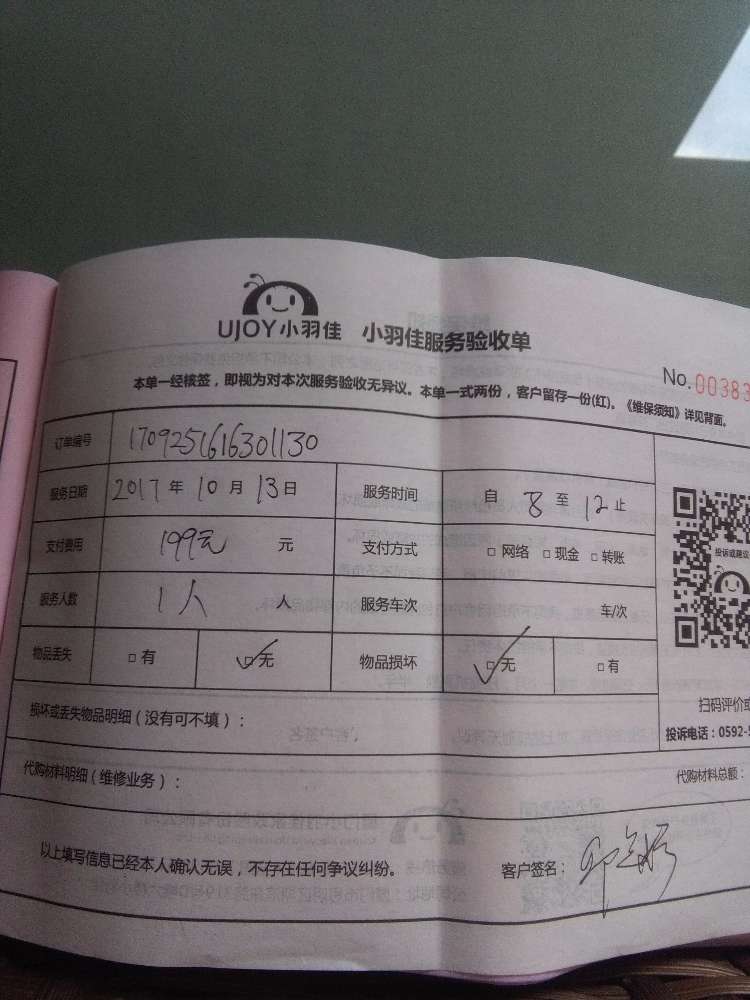 UJOY小羽佳 小羽佳服务验收单
No.00383
本单一经核签，即视为对本次服务验收无异议。本单一式两份，客户留存一份(红)。《维保须知》详见背面。
订单编号 1709251616301130
服务日期 2017年10月13日 服务时间 自8至12止
支付费用 199元 元 支付方式 □网络 □现金 □转账
投诉或建议
服务人数 1人 人 服务车次 车/次
物品丢失 □有 ☑无 物品损坏 ☑无 □有
损坏或丢失物品明细（没有可不填）：
扫码评价或
投诉电话：0592-5
代购材料明细（维修业务）：
代购材料总额：
以上填写信息已经本人确认无误，不存在任何争议纠纷。 客户签名：